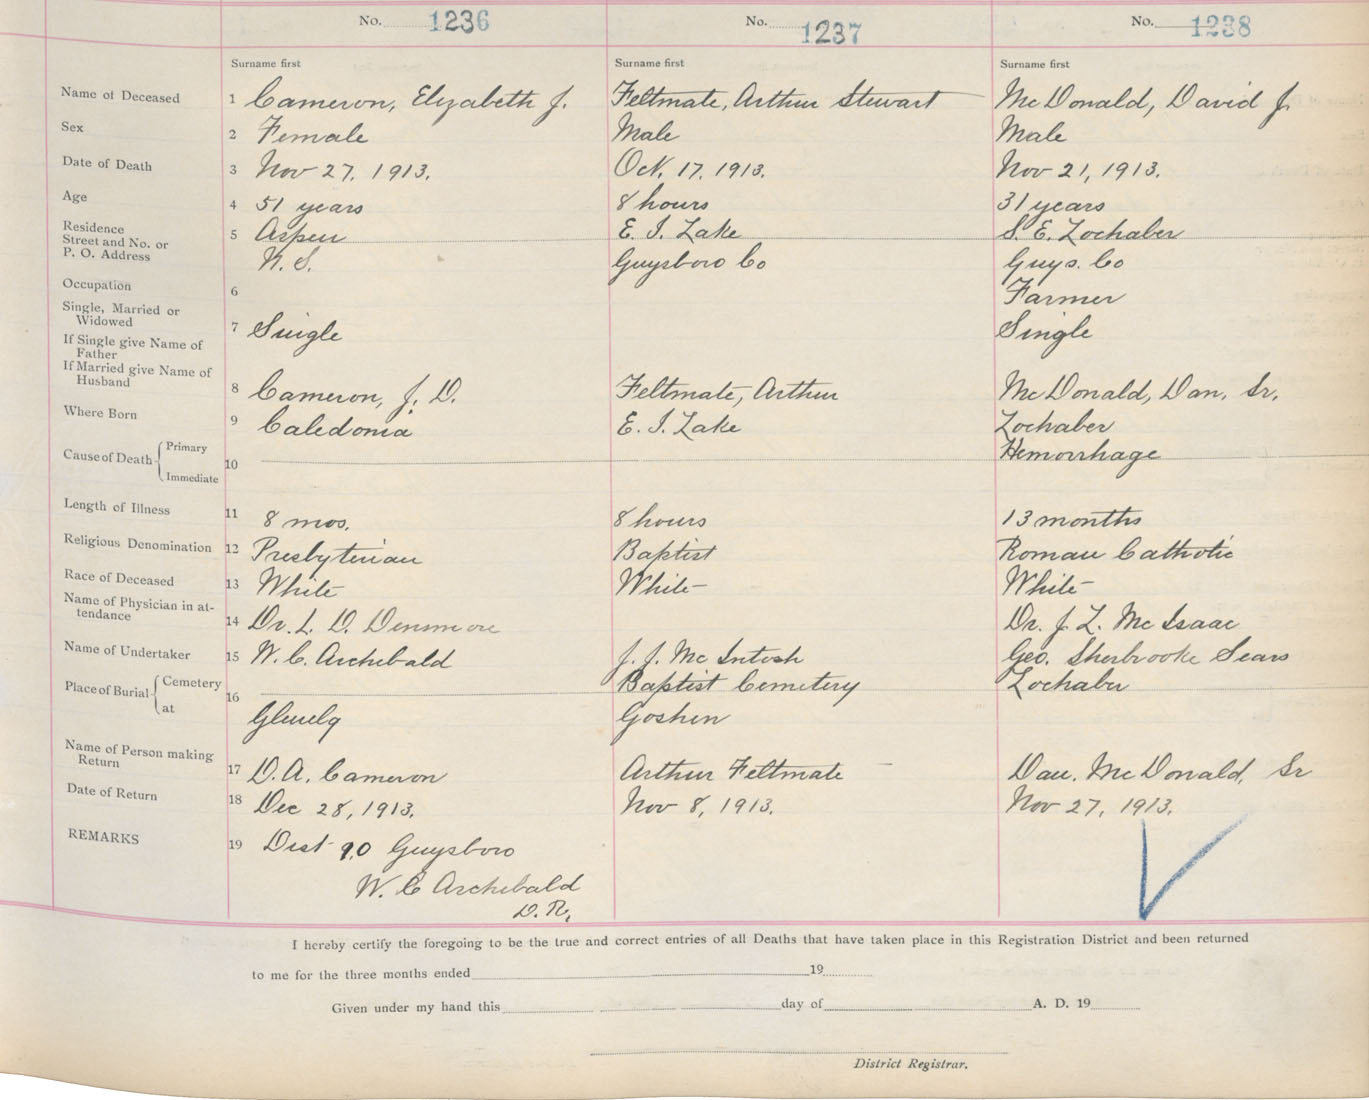 No. 1236 No. 1237 No. 1238
Surname first Surname first Surname first
Name of Deceased 1 Cameron, Elizabeth J. Feltmate, Arthur Stewart McDonald, David J.
Sex 2 Female Male Male
Date of Death 3 Nov 27. 1913. Oct. 17. 1913. Nov 21, 1913.
Age 4 51 years 8 hours 31 years
Residence
Street and No. or 5 Aspen E. I. Lake S. E. Lochaber
P. O. Address N. S. Guysboro Co Guys. Co
Occupation 6 Farmer
Single, Married or
Widowed 7 Single Single
If Single give Name of
Father
If Married give Name of
Husband 8 Cameron, J. D. Feltmate, Arthur McDonald, Dan, Sr.
Where Born 9 Caledonia E. I. Lake Lochaber
Cause of Death Primary Hemorrhage
10
Immediate
Length of Illness 11 8 mos. 8 hours 13 months
Religious Denomination 12 Presbyterian Baptist Roman Catholic
Race of Deceased 13 White White White
Name of Physician in at-
tendance 14 Dr. L. D. Densmore Dr. J. L. McIsaac
Name of Undertaker 15 W. C. Archibald J. J. McIntosh Geo. Sherbrooke Sears
Place of Burial Cemetery 16 Baptist Cemetery Lochaber
at Glenelg Goshen
Name of Person making
Return 17 D. A. Cameron Arthur Feltmate Dan. McDonald, Sr
Date of Return 18 Dec 28, 1913. Nov 8, 1913. Nov 27, 1913.
REMARKS 19 Dist 90 Guysboro
W. C Archibald
D. R.
I hereby certify the foregoing to be the true and correct entries of all Deaths that have taken place in this Registration District and been returned
to me for the three months ended 19
Given under my hand this day of A. D. 19
District Registrar.